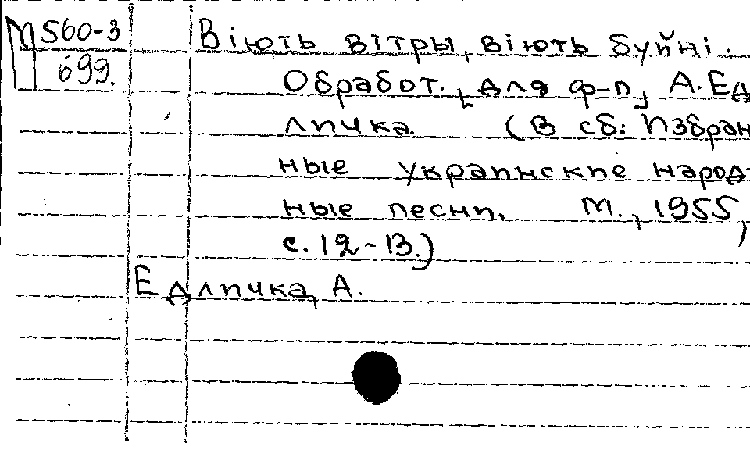 М 560-3
699.
Віють вітры, віють буйні.
Обработ. [для ф-п] А. Ед
лички (В сб: Избран
ные украинские народ-
ные песни. М., 1955,
с. 12-13.)
Едличка, А.